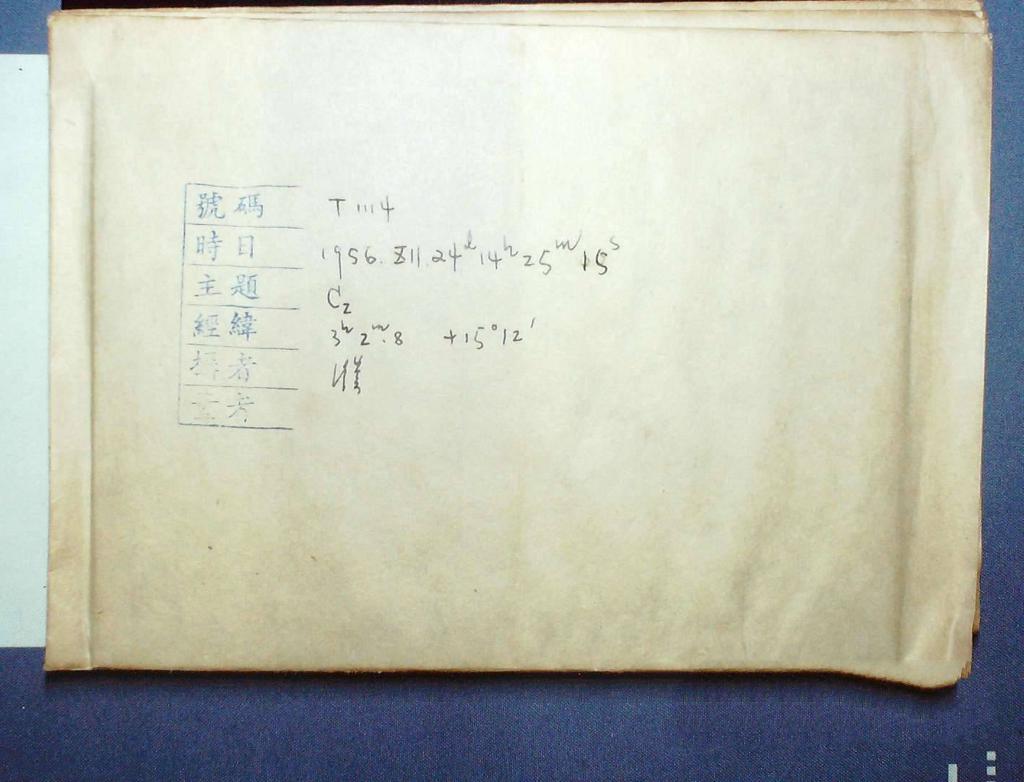 號碼 T 1114
時日 1956.XII.24ᵈ14ʰ25ᵐ15ˢ
主題 C₂
經緯 3ʰ2ᵐ.8 +15°12′
攝者
考